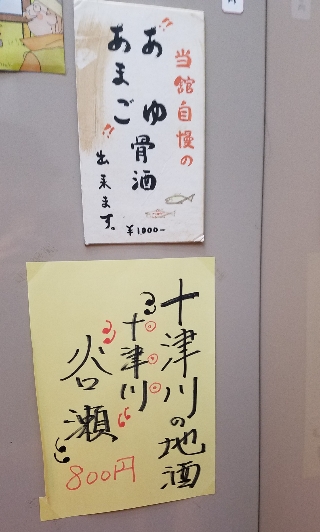 当館自慢の
あゆ骨酒
あまご
出来ます。
¥1000-
十津川の地酒
十津川
谷瀬
800円